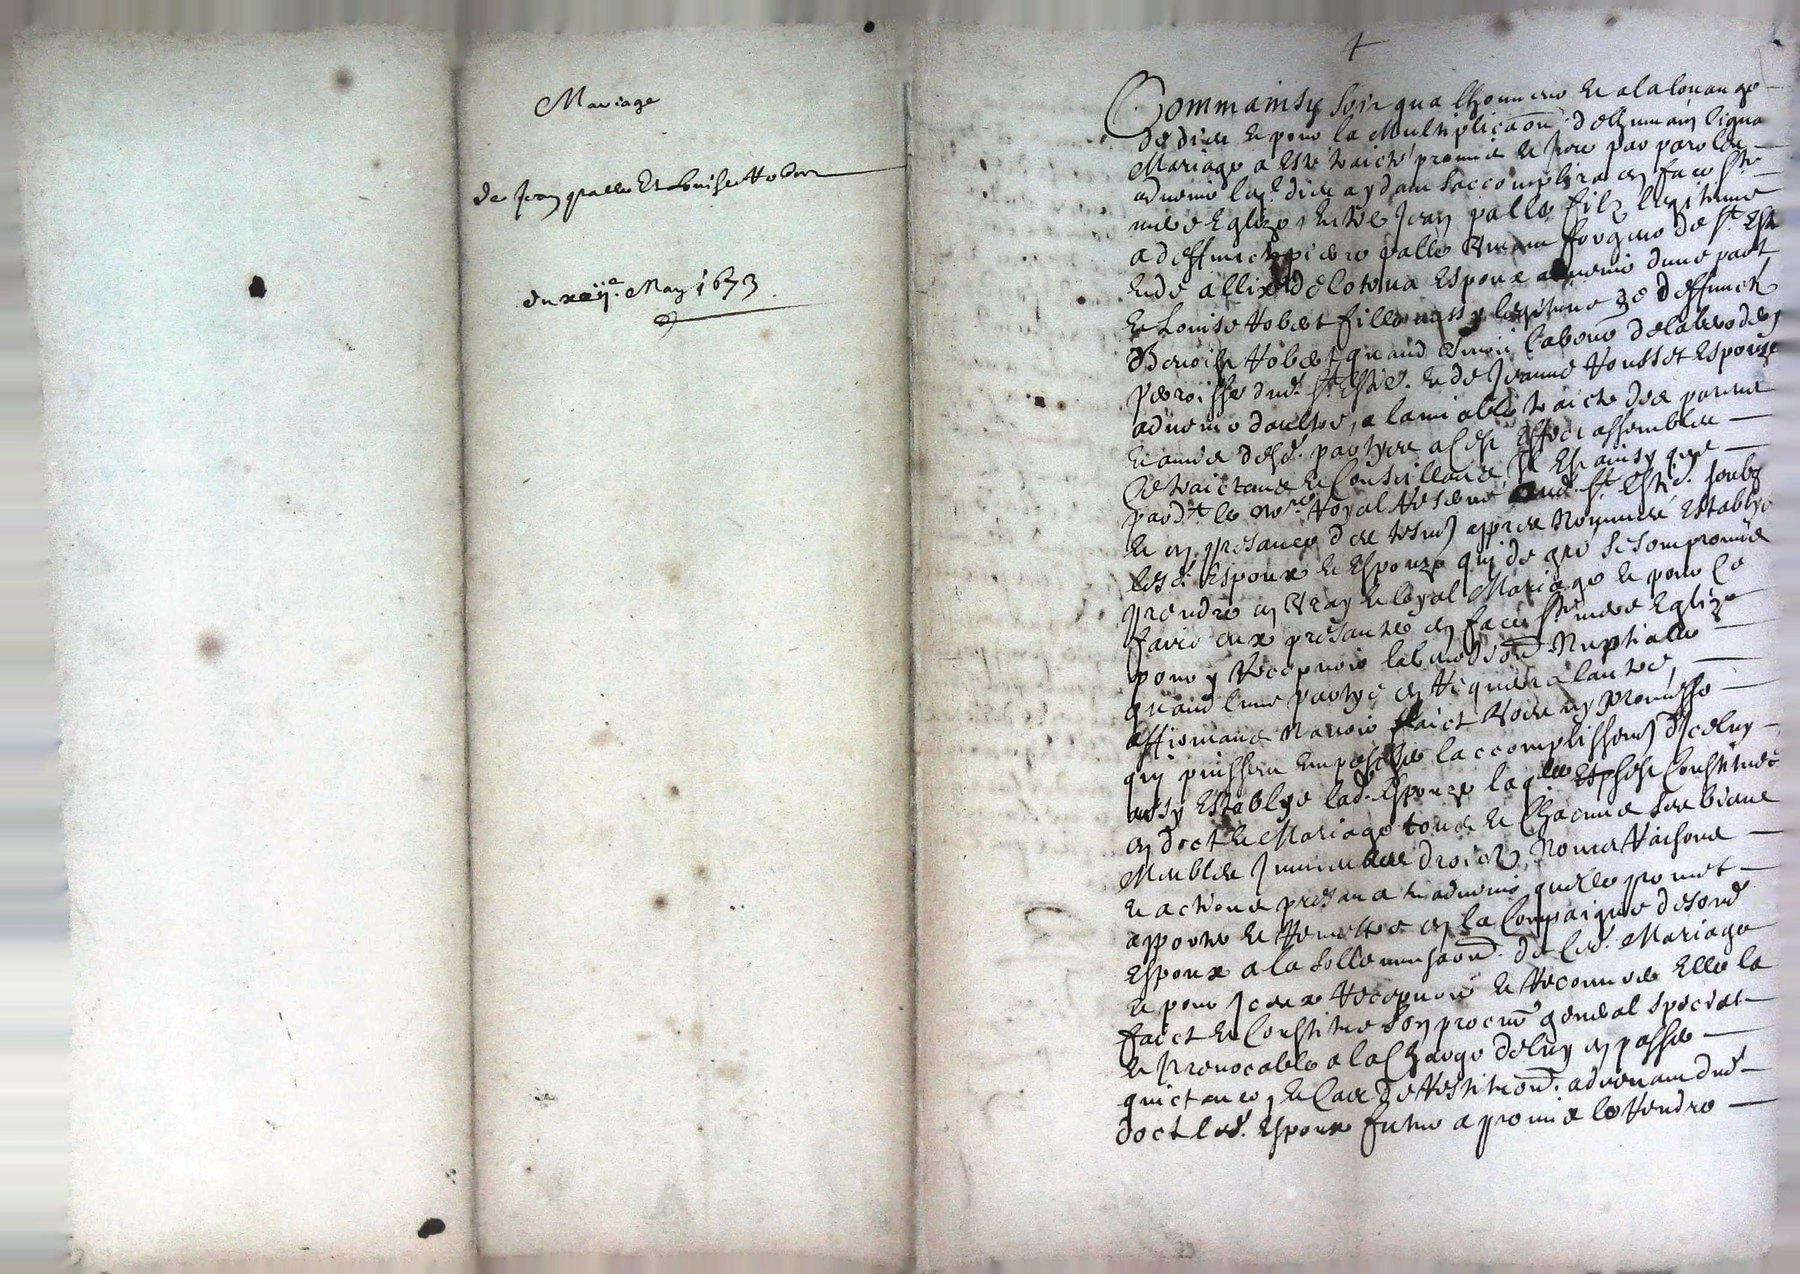 Mariage
de Jean palle Et Louise Hobert
du xxiije May 1673
Comme ainsy soit qua lhonneur et a la louange
de dieu et pour la Multiplicaon. de lhumain ligna
Mariage a esté traicté promis et juré par parolles
advenir lesq. dieu aydant saccomplira en face ste.
mere Eglize, Entre Jean palle filz legitime
a deffunct pierre palle vivant forgeur de st. Est
et de allix Espoux advenir dune part
Et Louise Hobert fille aussy legitime de deffunct
Benoist Hobert quand vivoit labour de
perroisse dud. st. Est. et de Jeanne Espouze
advenir daultre, a lamiable traicte des parens
et amis desd. partyes a cest effect assembles
Ce traictans et Conseillans, Il Est ainsy que
pard.t le no.re Royal Reservé dud. st. Est. soubz
et en presance des tesm. appres Nommes Establys
lesd. Espoux et Espouze qui de gré se sont promis
prendre en vray et loyal Mariage et pour ce
faire eux presanter en face ste. mere Eglize
pour y Recepvoir la benedion Nuptialle
quand lune partye en Requerra lautre,
affirmans Navoir faict ny promesse
qui puissent Empescher laccomplissem. dicelluy
aussy Establye lad. Espouze laq.lle Constitué
en doct et Mariage tous et Chacuns ses biens
Meubles Immeubles droictz, Noms Raisons
et actions presans et advenir, quelle promet
apporter et Remettre en la Compaignie de sond.
Espoux a la sollempnisaon. de Ced. Mariage
et pour Iceux Recepvoir et Recouvrer Elle la
faict et Constitue son procur general special
et Irrevocable a la Charge deluy en passer
quictance, et Cas de Restituon. advenant dud.
doct led. Espoux futur a promis le Rendre